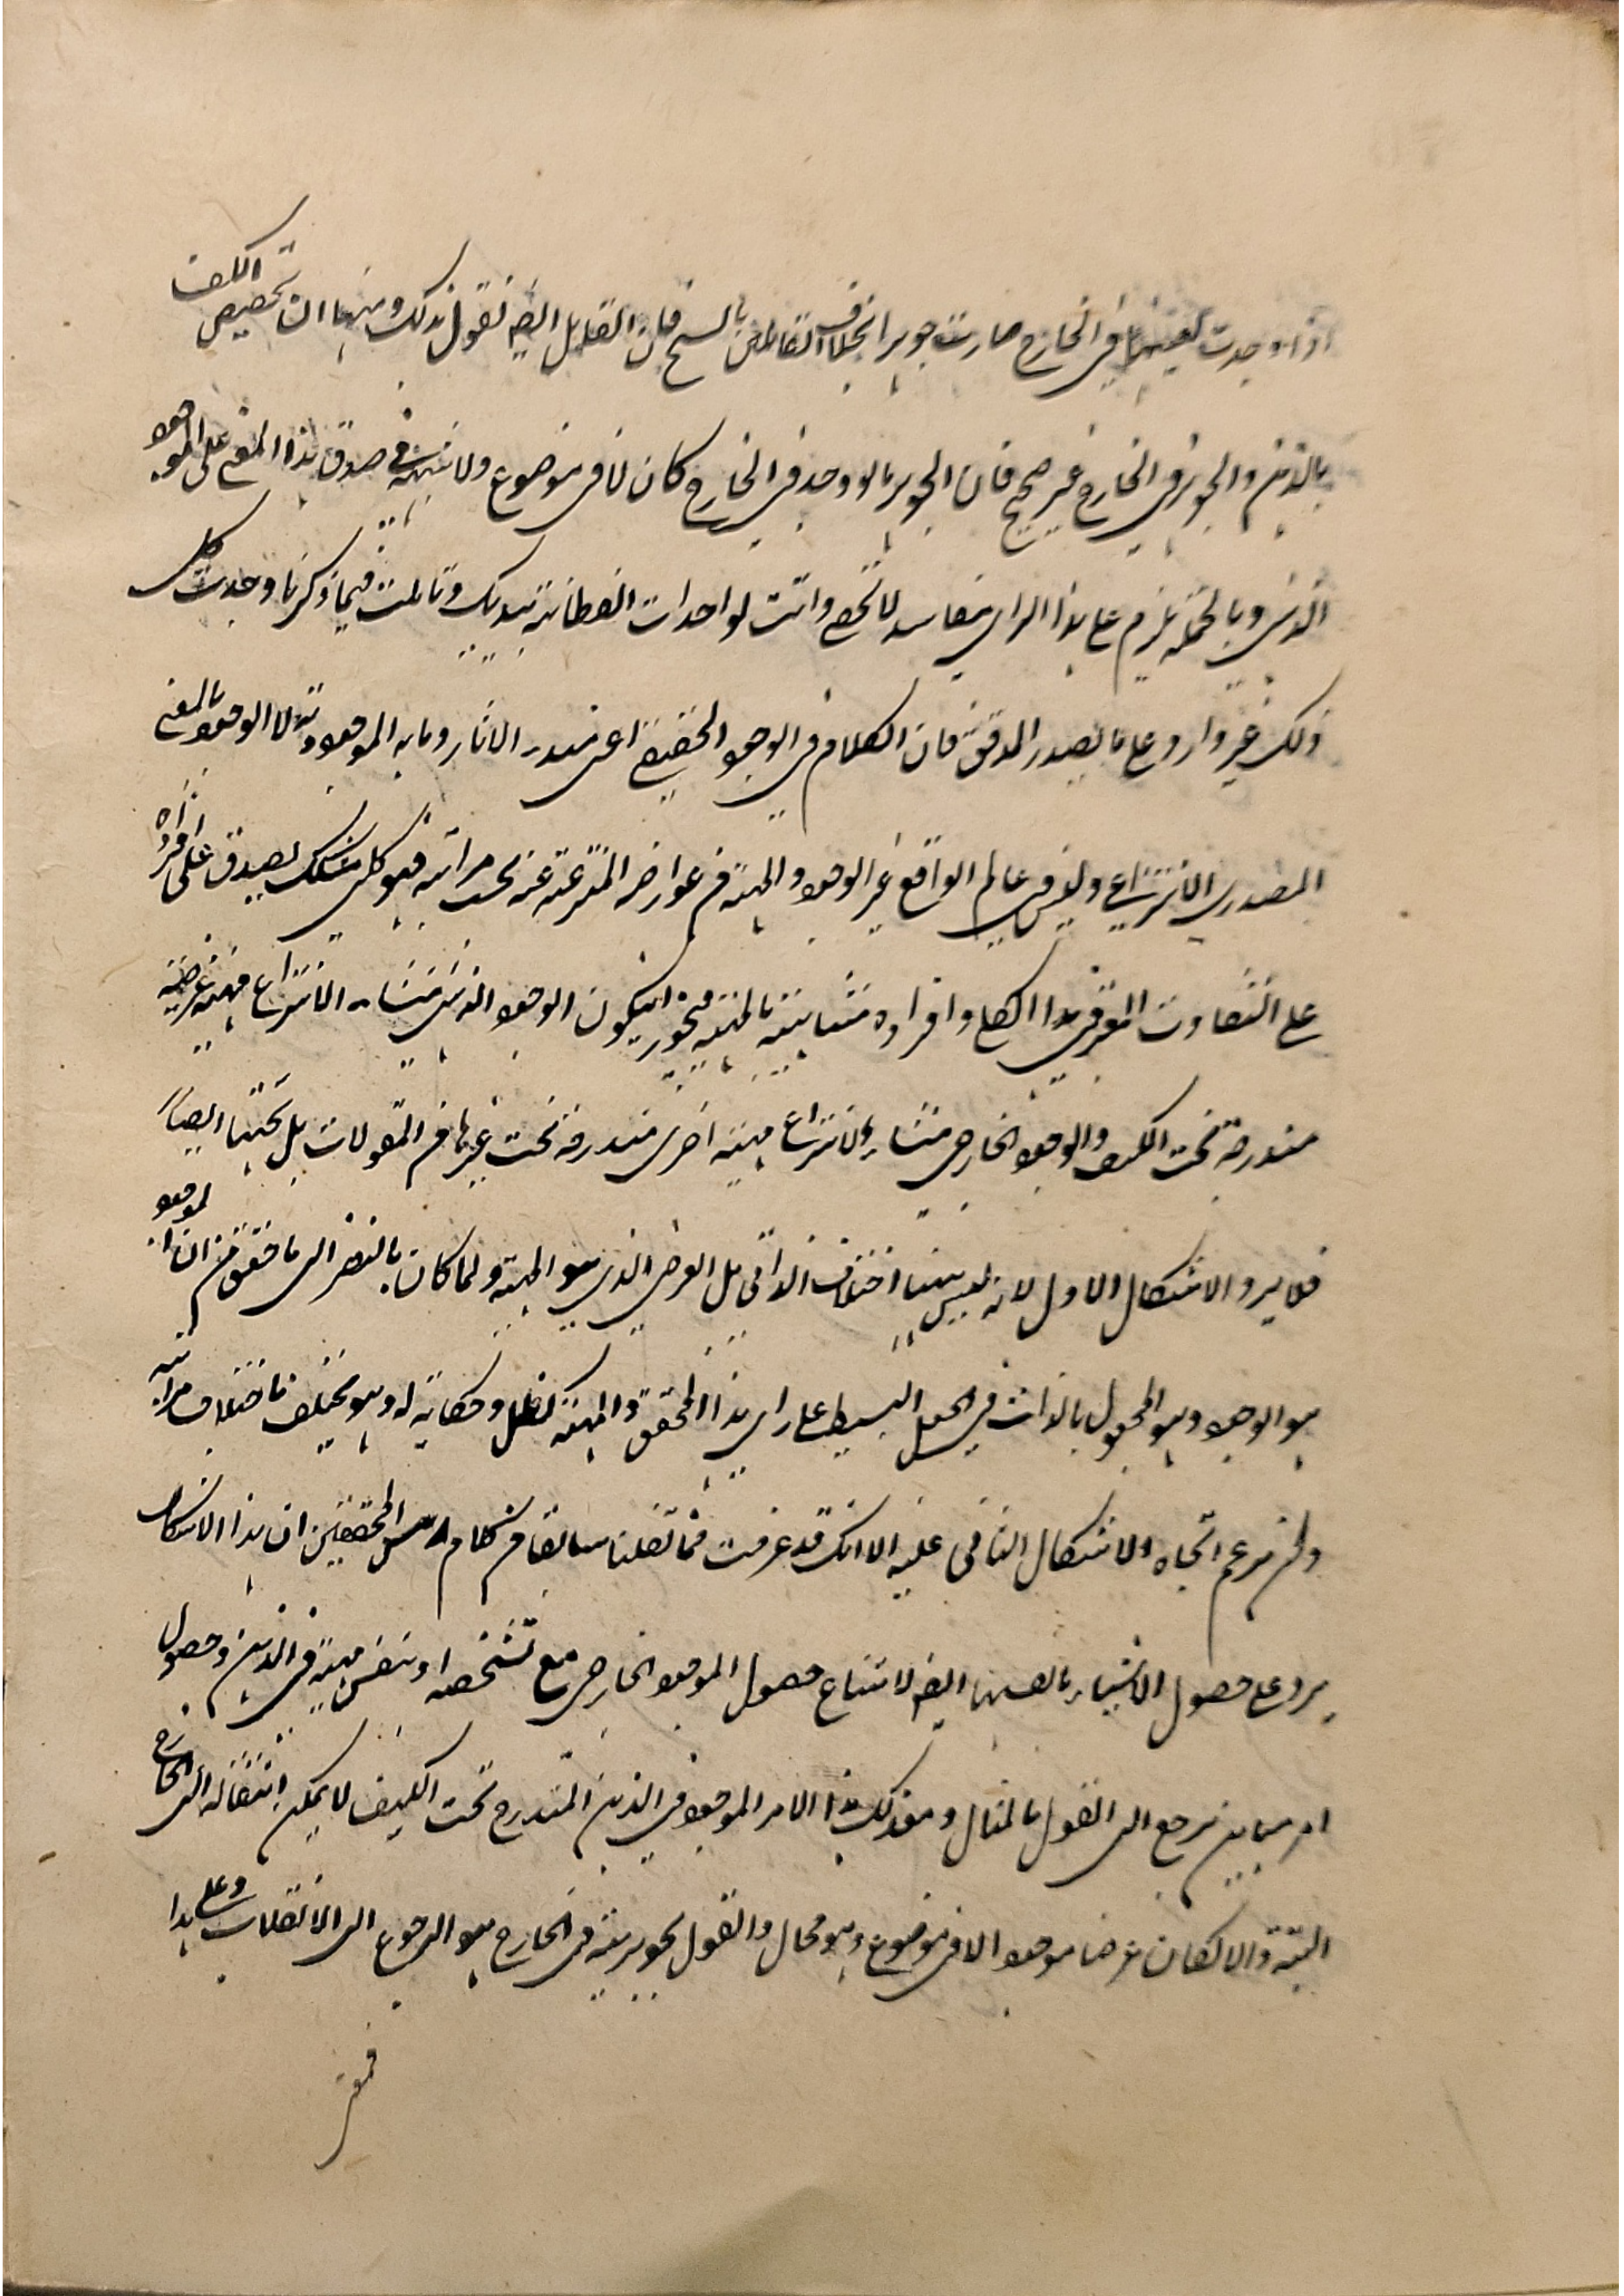 اذا وجدت بعينها في الخارج صارت جوهرا بخلاف القائلين بالشبح قلت القائل ايضا يقول بذلك ومنها ان تخصيص الكيف
بالذهن والجوهر في الخارج غير صحيح فان الجوهر ما لو وجد في الخارج كان لا في موضوع ولا شبهة في صدق هذا المعنى على الموجود
الذهني وبالجملة يلزم على هذا الراي مفاسد لا تحصى وانت لو اخذت الفطانة بيديك وتاملت فيما ذكرنا وجدت كل
ذلك غير وارد على الصدر المدقق فان الكلام في الوجود الحقيقي اعني مبدء الاثار وما به الموجودية لا الوجود بالمعنى
المصدري الانتزاعي وليس في عالم الواقع غير الوجود والمهية من عوارضه المنتزعة عنه بحسب مراتبه فهو كلي مشكك يصدق على افراده
على التفاوت المعتبر في هذا الكلي وافراده متباينة بالمهية فيجوز ان يكون الوجود الذهني منشاء لانتزاع مهية عرضية
مندرجة تحت الكيف والوجود الخارجي منشاء لانتزاع مهية اخرى مندرجة تحت غيرها من المقولات بل تحتها ايضا
فلا يرد الاشكال الاول لانه ليس هنا اختلاف الذاتي بل العرضي الذي هو المهية ولما كان بالنظر الى ما حقق من ان الموجود
هو الوجود وهو المجعول بالذات في الجعل البسيط على راي هذا المحقق والمهية كظل وحكاية له وهو يختلف باختلاف مراتبه
ولمن زعم اتجاه الاشكال الثاني عليه الا انك قد عرفت مما نقلنا سابقا من كلام المحققين ان هذا الاشكال
يرد على حصول الاشياء بانفسها ايضا لامتناع حصول الموجود الخارجي مع تشخصه او بنفس مهيته في الذهن وحصول
امر مباين يرجع الى القول بالمثال ومع ذلك هذا الامر الموجود في الذهن المندرج تحت الكيف لا يمكن انتقاله الى الخارج
البتة والا لكان عرضا موجودا لا في موضوع وهو محال والقول بجوهريته في الخارج هو الرجوع الى الانقلاب وعلى هذا